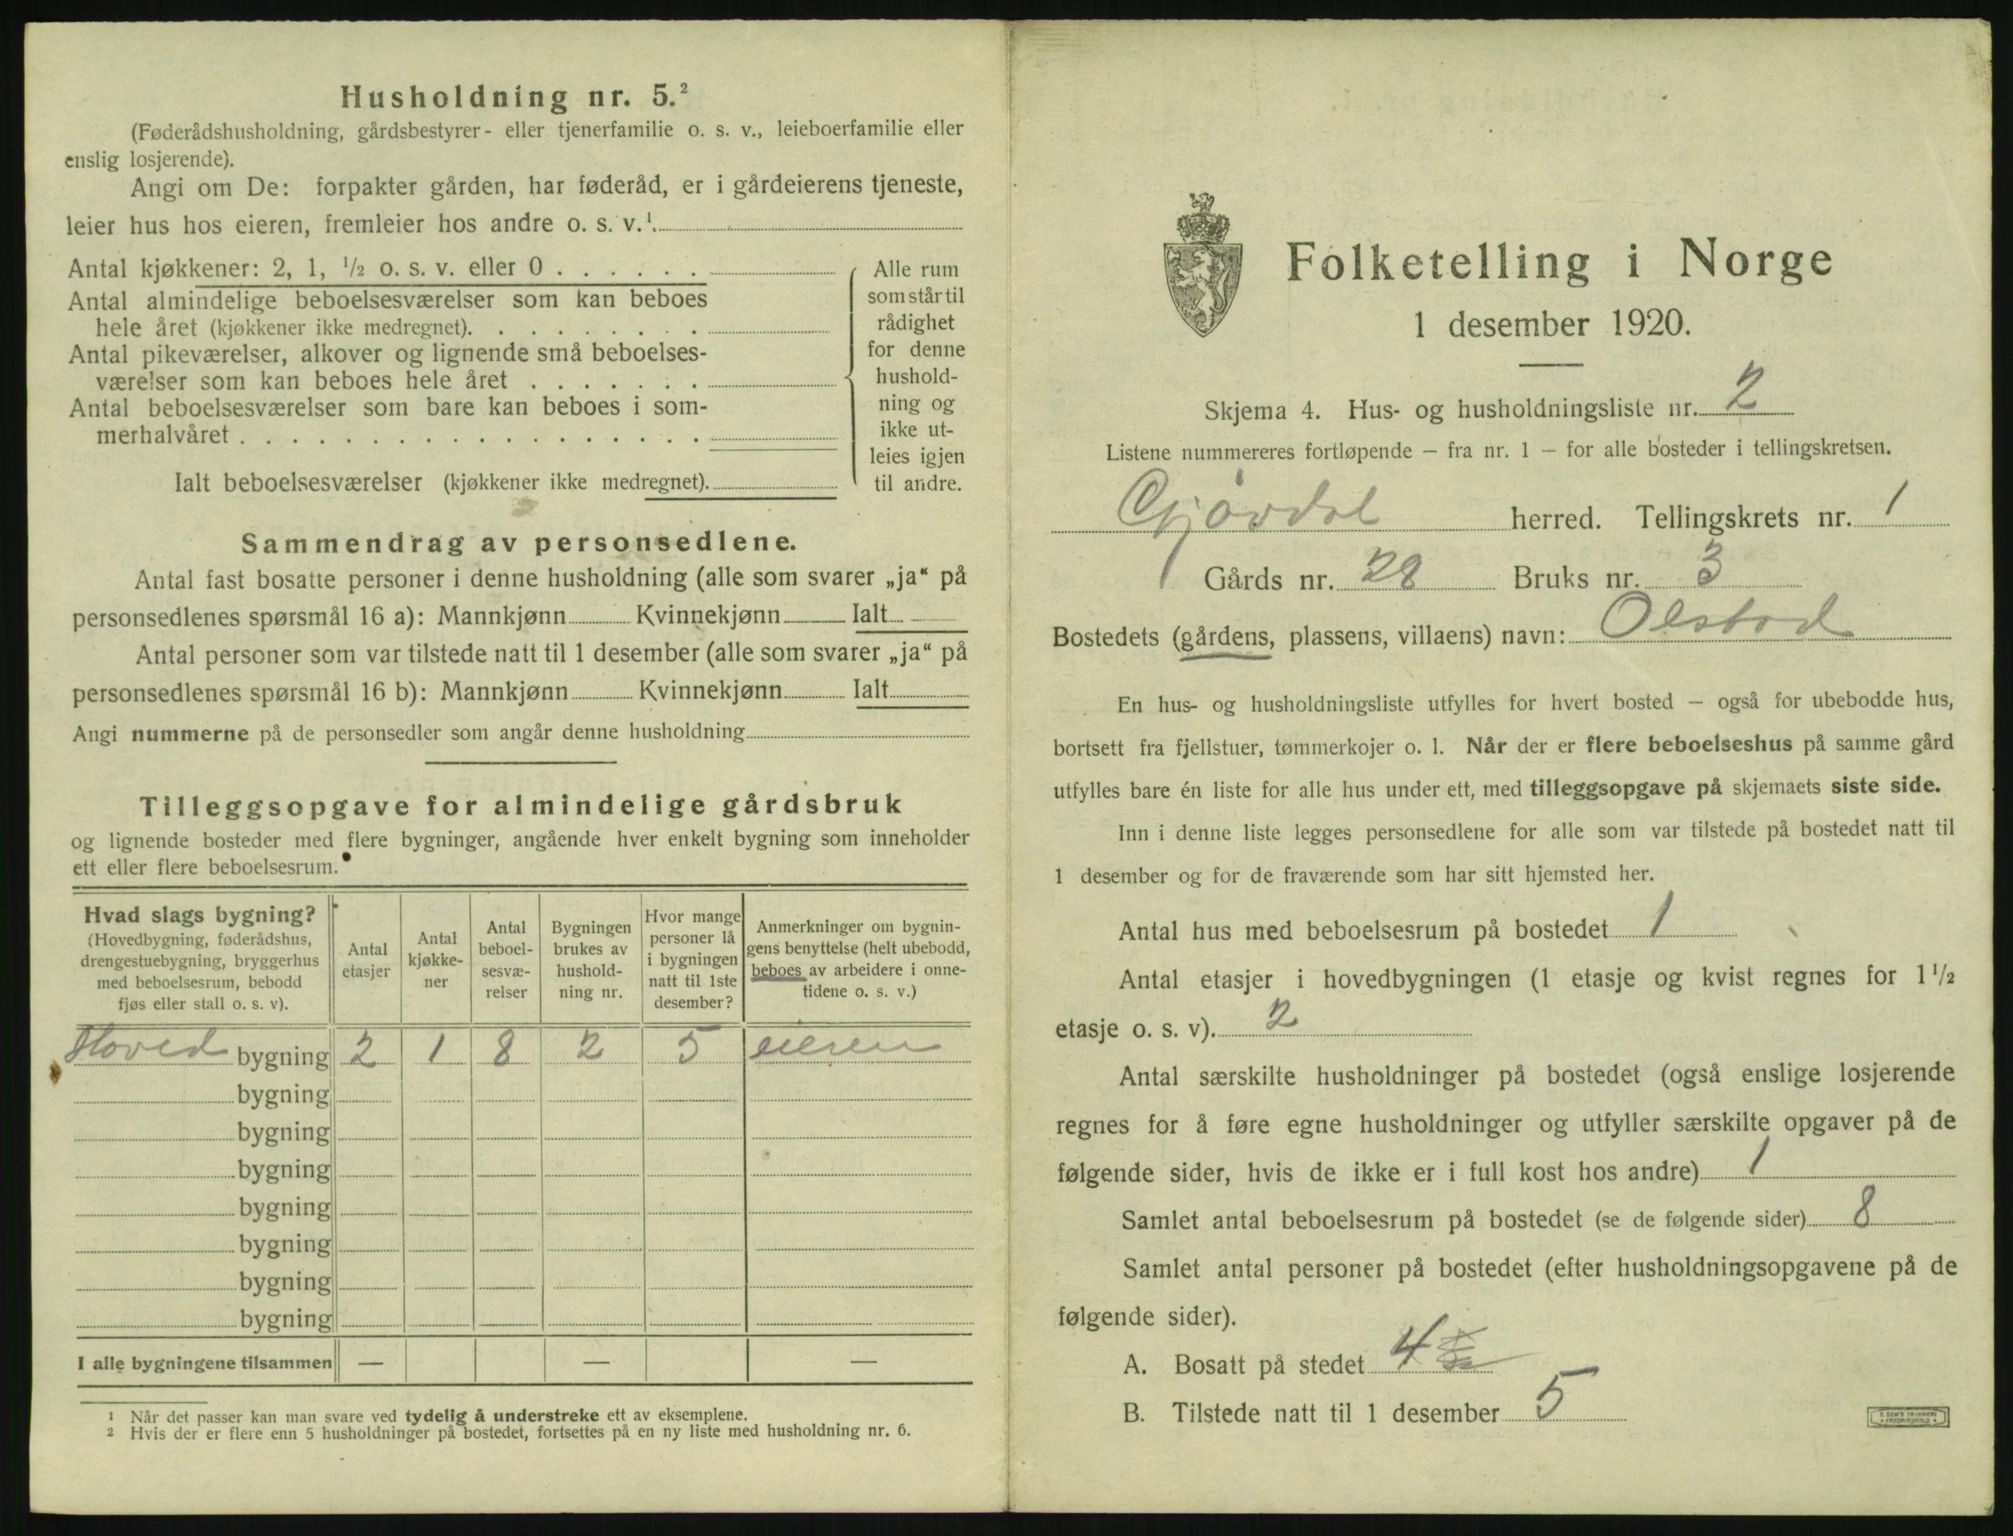 Husholdning nr. 5.²
(Føderådshusholdning, gårdsbestyrer- eller tjenerfamilie o. s. v., leieboerfamilie eller
enslig losjerende).
Angi om De: forpakter gården, har føderåd, er i gårdeierens tjeneste,
leier hus hos eieren, fremleier hos andre o. s. v.¹
Antal kjøkkener: 2, 1, ½ o. s. v. eller 0 . . . . . .
Antal almindelige beboelsesværelser som kan beboes
hele året (kjøkkener ikke medregnet). . . . . . . . .
Antal pikeværelser, alkover og lignende små beboelses-
værelser som kan beboes hele året . . . . . . .
Antal beboelsesværelser som bare kan beboes i som-
merhalvåret . . . . . . . . . . . . . . . . . .
Ialt beboelsesværelser (kjøkkener ikke medregnet).
Alle rum
som står til
rådighet
for denne
hushold-
ning og
ikke ut-
leies igjen
til andre.
Sammendrag av personsedlene.
Antal fast bosatte personer i denne husholdning (alle som svarer „ja“ på
personsedlenes spørsmål 16 a): Mannkjønn Kvinnekjønn Ialt
Antal personer som var tilstede natt til 1 desember (alle som svarer „ja“ på
personsedlenes spørsmål 16 b): Mannkjønn Kvinnekjønn Ialt
Angi nummerne på de personsedler som angår denne husholdning
Tilleggsopgave for almindelige gårdsbruk
og lignende bosteder med flere bygninger, angående hver enkelt bygning som inneholder
ett eller flere beboelsesrum.
Hvad slags bygning?
(Hovedbygning, føderådshus,
drengestuebygning, bryggerhus
med beboelsesrum, bebodd
fjøs eller stall o. s. v).
Antal
etasjer
Antal
kjøkke-
ner
Antal
beboel-
sesvæ-
relser
Bygningen
brukes av
hushold-
ning nr.
Hvor mange
personer lå
i bygningen
natt til 1ste
desember?
Anmerkninger om bygnin-
gens benyttelse (helt ubebodd,
beboes av arbeidere i onne-
tidene o. s. v.)
Hoved bygning 2 1 8 2 5 eieren
bygning
bygning
bygning
bygning
bygning
bygning
bygning
I alle bygningene tilsammen — — —
¹ Når det passer kan man svare ved tydelig å understreke ett av eksemplene.
² Hvis der er flere enn 5 husholdninger på bostedet, fortsettes på en ny liste med husholdning nr. 6.
Folketelling i Norge
1 desember 1920.
Skjema 4. Hus- og husholdningsliste nr. 2
Listene nummereres fortløpende – fra nr. 1 – for alle bosteder i tellingskretsen.
Gjövdal herred. Tellingskrets nr. 1
Gårds nr. 28 Bruks nr. 3
Bostedets (gårdens, plassens, villaens) navn: Olstad
En hus- og husholdningsliste utfylles for hvert bosted – også for ubebodde hus,
bortsett fra fjellstuer, tømmerkojer o. l. Når der er flere beboelseshus på samme gård
utfylles bare én liste for alle hus under ett, med tilleggsopgave på skjemaets siste side.
Inn i denne liste legges personsedlene for alle som var tilstede på bostedet natt til
1 desember og for de fraværende som har sitt hjemsted her.
Antal hus med beboelsesrum på bostedet 1
Antal etasjer i hovedbygningen (1 etasje og kvist regnes for 1½
etasje o. s. v). 2
Antal særskilte husholdninger på bostedet (også enslige losjerende
regnes for å føre egne husholdninger og utfyller særskilte opgaver på de
følgende sider, hvis de ikke er i full kost hos andre) 1
Samlet antal beboelsesrum på bostedet (se de følgende sider) 8
Samlet antal personer på bostedet (efter husholdningsopgavene på de
følgende sider).
A. Bosatt på stedet 4
B. Tilstede natt til 1 desember 5